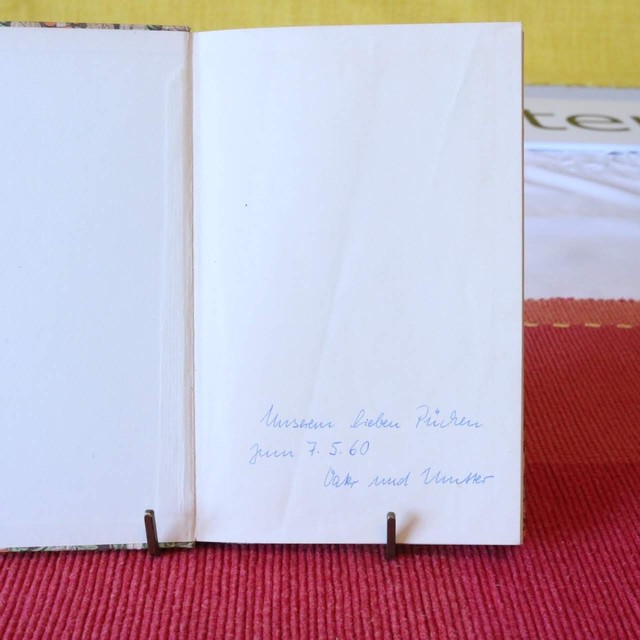 te
Unserem lieben
zum 7. 5. 60
Vater und Mutter